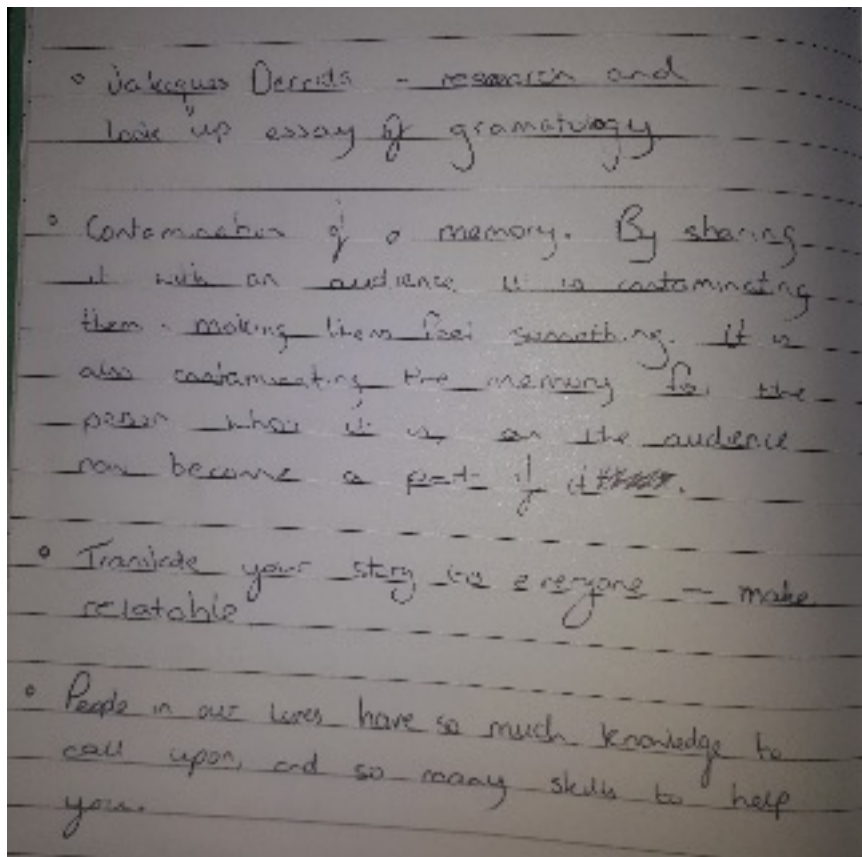 Jakcques Derrida - research and
look up essay of gramatology
Contamination of a memory. By sharing
it with an audience it is contaminating
them - making them feel something. It is
also contaminating the memory for the
person whos it is, as the audience
now become a part of it
Translate your story to everyone - make
relatable
People in our lives have so much knowledge to
call upon, and so many skills to help
you.